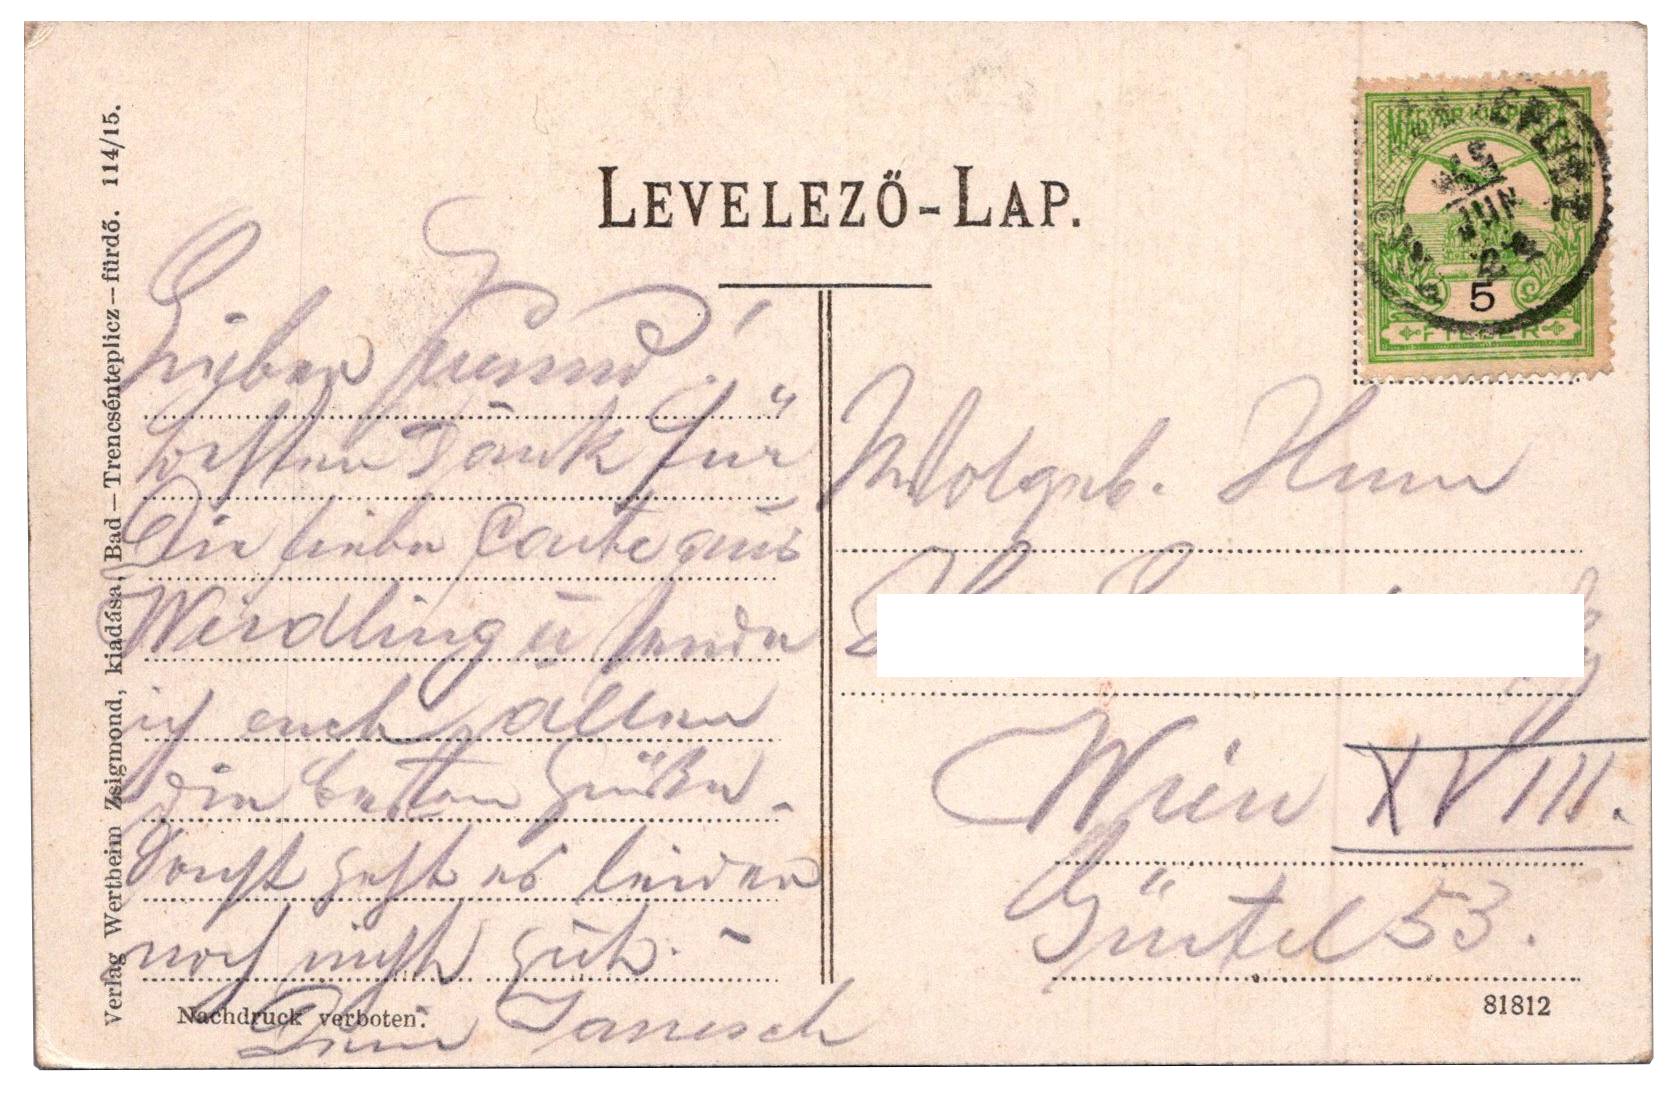 LEVELEZŐ-LAP.
Verlag Wertheim Zsigmond, kiadása, Bad—Trencsénteplicz—fürdő. 114/15.
MAGYAR KIR. POSTA
15
JUN
5
FILLÉR
Lieber Freund!
besten Dank für
Die liebe Carte aus
Wördling u sende
ich euch allen
die besten Grüße.
Sonst geht es leider
noch nicht gut. -
Dein Janesch
Nachdruck verboten.
Wolgeb. Herrn
Wien XVIII.
Gürtel 53.
81812